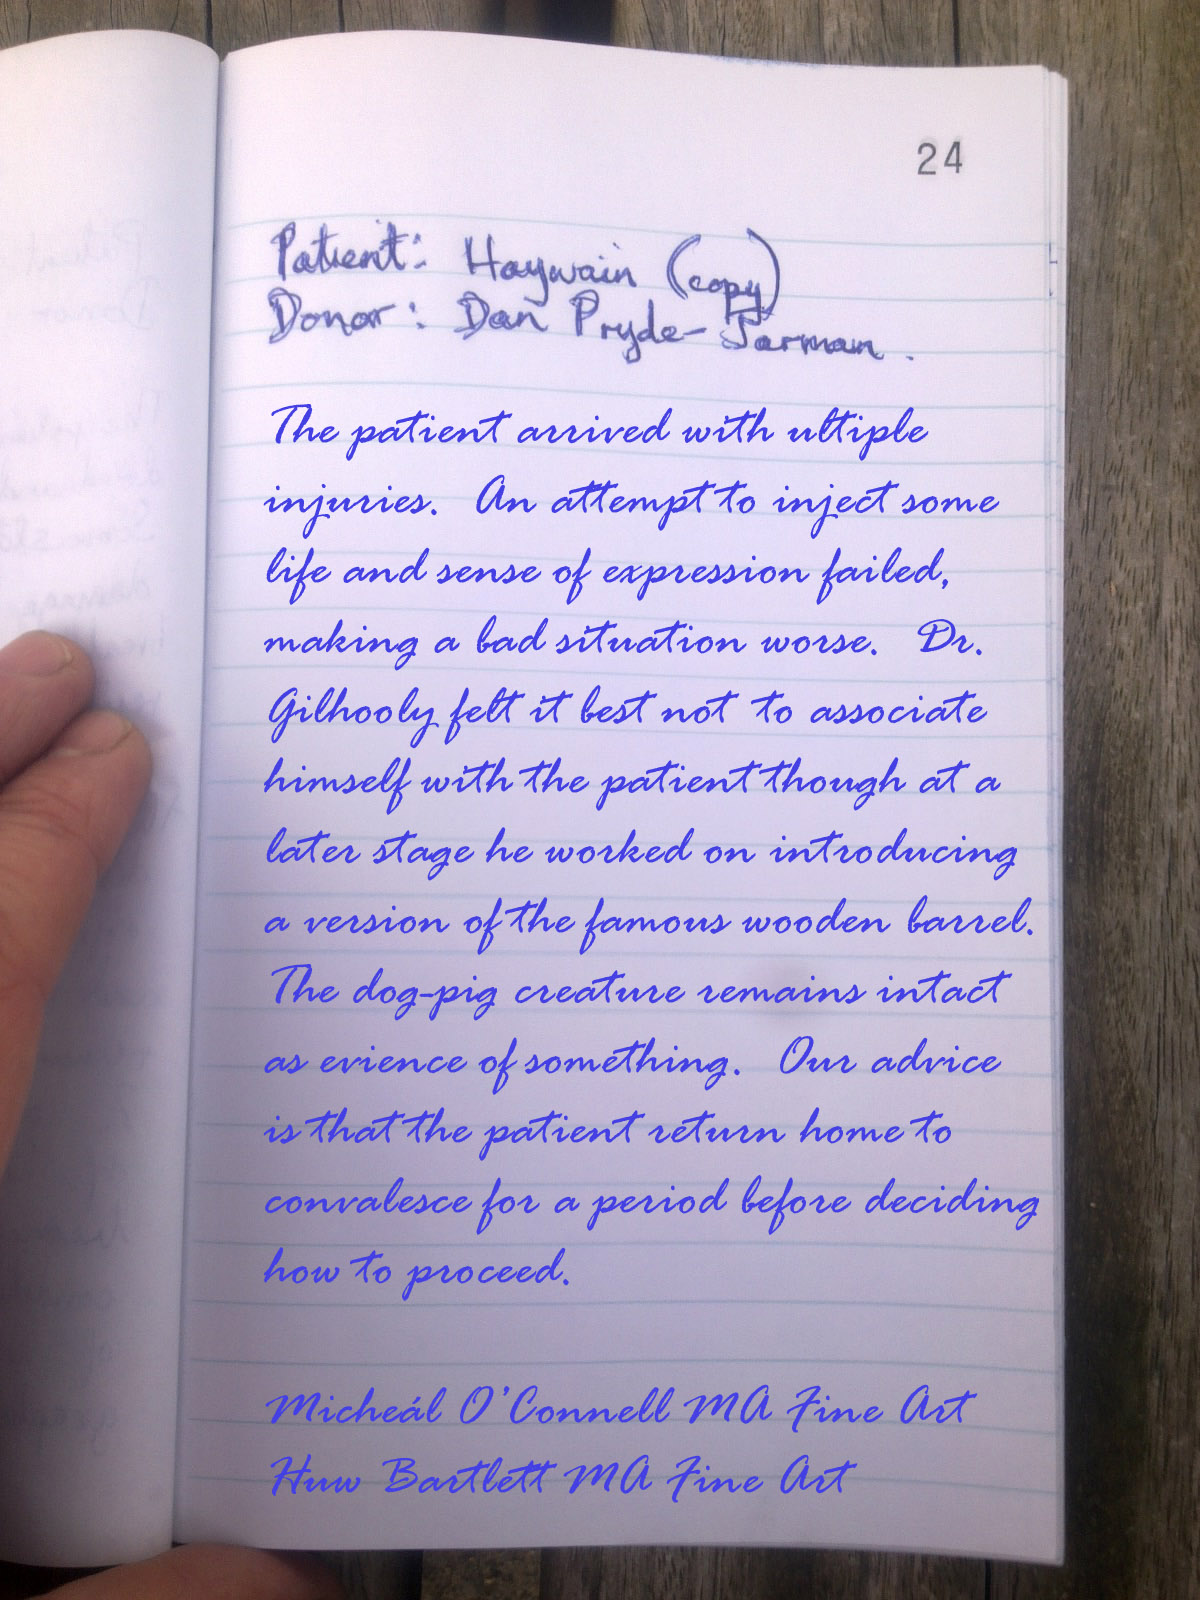 24
Patient: Haywain (copy)
Donor: Dan Pryde-Jarman.
The patient arrived with ultiple
injuries. An attempt to inject some
life and sense of expression failed,
making a bad situation worse. Dr.
Gilhooly felt it best not to associate
himself with the patient though at a
later stage he worked on introducing
a version of the famous wooden barrel.
The dog-pig creature remains intact
as evience of something. Our advice
is that the patient return home to
convalesce for a period before deciding
how to proceed.
Micheál O'Connell MA Fine Art
Huw Bartlett MA Fine Art